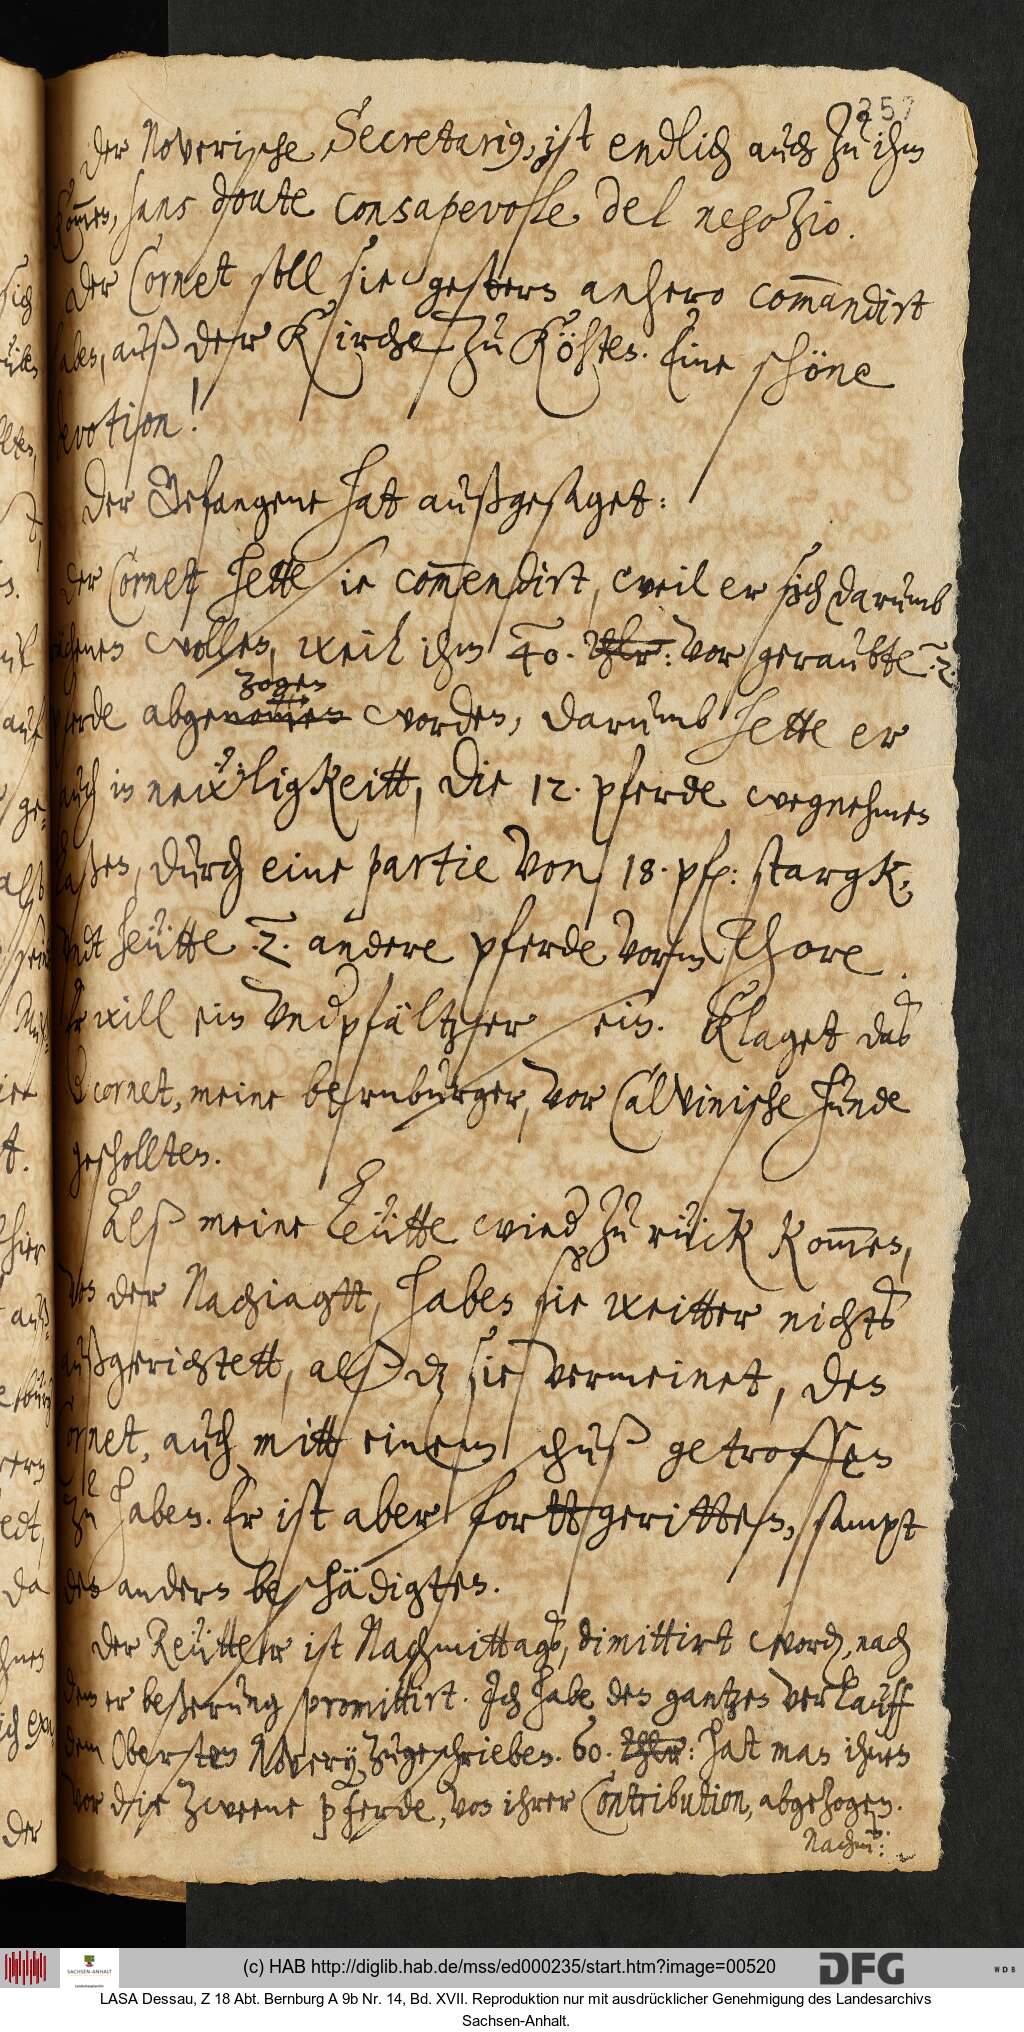 257
Der Noverische Secretarius, ist endlich auch zu ihm
kommen, sans doute consapevole del negozio.
Der Cornet soll sie gestern anhero commandirt
haben, auß der Kirche zu Köhten. Eine schöne
devotion!
Der Gefangene hat außgesaget:
der Cornet hette sie commendirt, weil er sich darumb
rächenen wollen, weil ihm 40 Thlr: vor geraubte 2
pferde abgenommen
zogen
worden, darumb hette er
auch in neüligkeitt, die 12. pferde wegnehmen
laßen, durch eine partie von 18. pf: stargk,
vndt heütte .2. andere pferde vorm Thore.
Er will ein Undpfältzher sein. Klaget das
der cornet, meine bernburger, vor Calvinische hunde
geschollten.
Alß meine Leütte wieder zu rück kommen,
von der Nachiagtt, haben sie weitter nichts
außgerichtett, alß daz sie vermeinet, den
Cornet, auch mitt einem schuß getroffen
zu haben. Er ist aber forttgeritten, sampt
den andern beschädigten.
Der Reütter ist Nachmittags, dimittirt worden, nach
dem er beßerung promittirt. Ich habe den gantzen verlauff
dem Obersten Novery, zugeschrieben. 60. Thlr: hat man ihnen
vor die zweene pferde, von ihrer Contribution, abgezogen.
Nachm:
(c) HAB http://diglib.hab.de/mss/ed000235/start.htm?image=00520
SACHSEN-ANHALT
DFG
WDB
LASA Dessau, Z 18 Abt. Bernburg A 9b Nr. 14, Bd. XVII. Reproduktion nur mit ausdrücklicher Genehmigung des Landesarchivs
Sachsen-Anhalt.